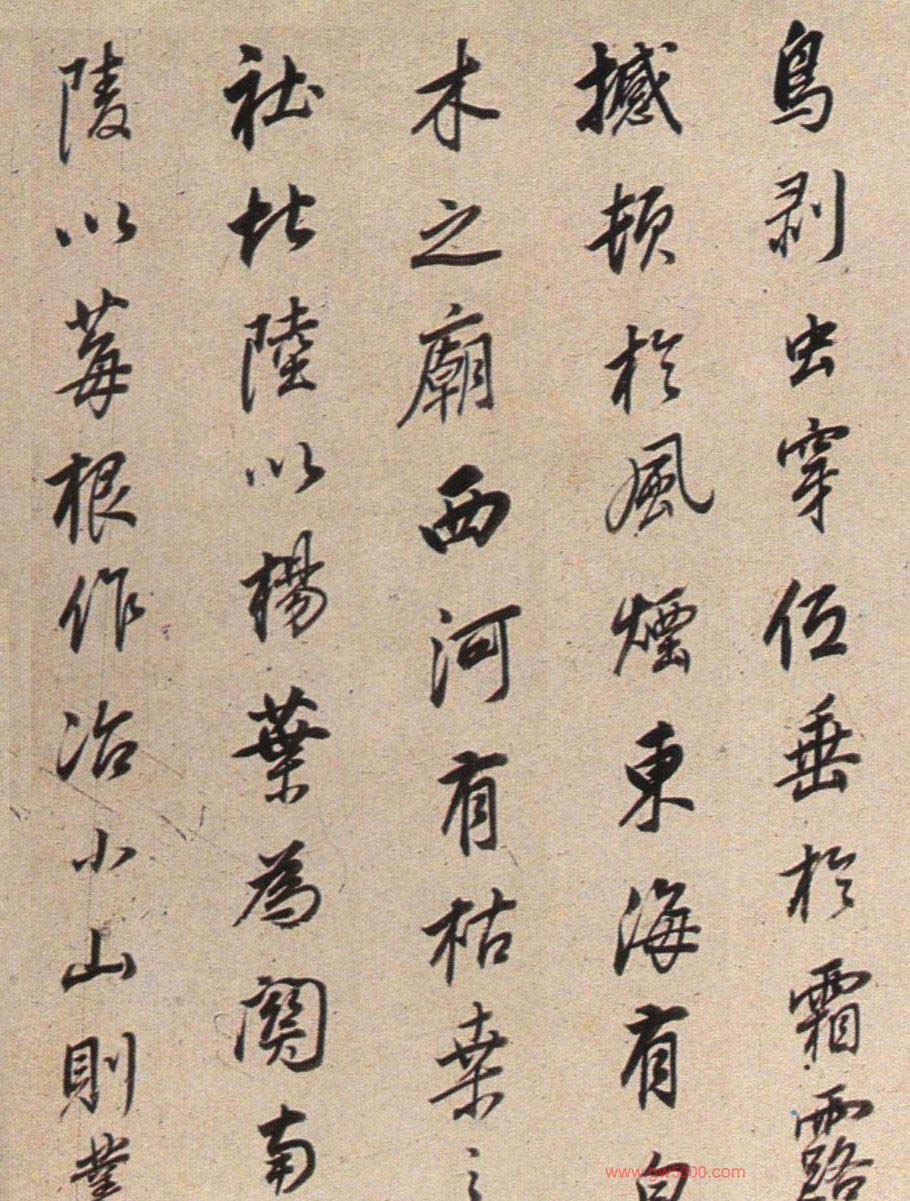 鳥剥虫穿低垂於霜露
撼頓於風煙東海有白
木之廟西河有枯桒之
社北陸以楊葉為關南
陵以莓根作冶小山則叢